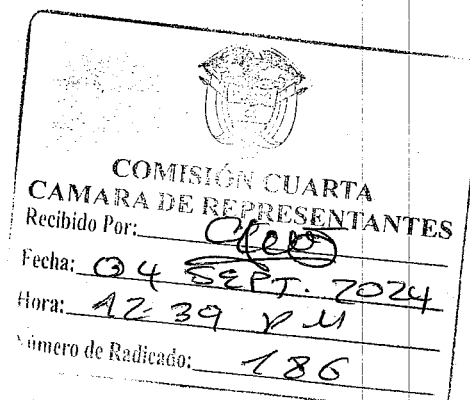 COMISIÓN CUARTA
CAMARA DE REPRESENTANTES
Recibido Por:
Fecha: 04 SEPT. 2024
Hora: 12:39 P M
Número de Radicado: 186